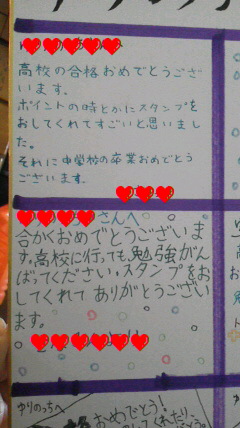 高校の合格おめでとうござい
ます。
ポイントの時とかにスタンプを
おしてくれてすごいと思いまし
た。
それに中学校の卒業おめでとう
ございます。
さんへ
合かくおめでとうございま
す。高校に行っても、勉強がん
ばってください。スタンプをお
してくれてありがとうござい
ます。
ゆりのっちへ
おめでとう!